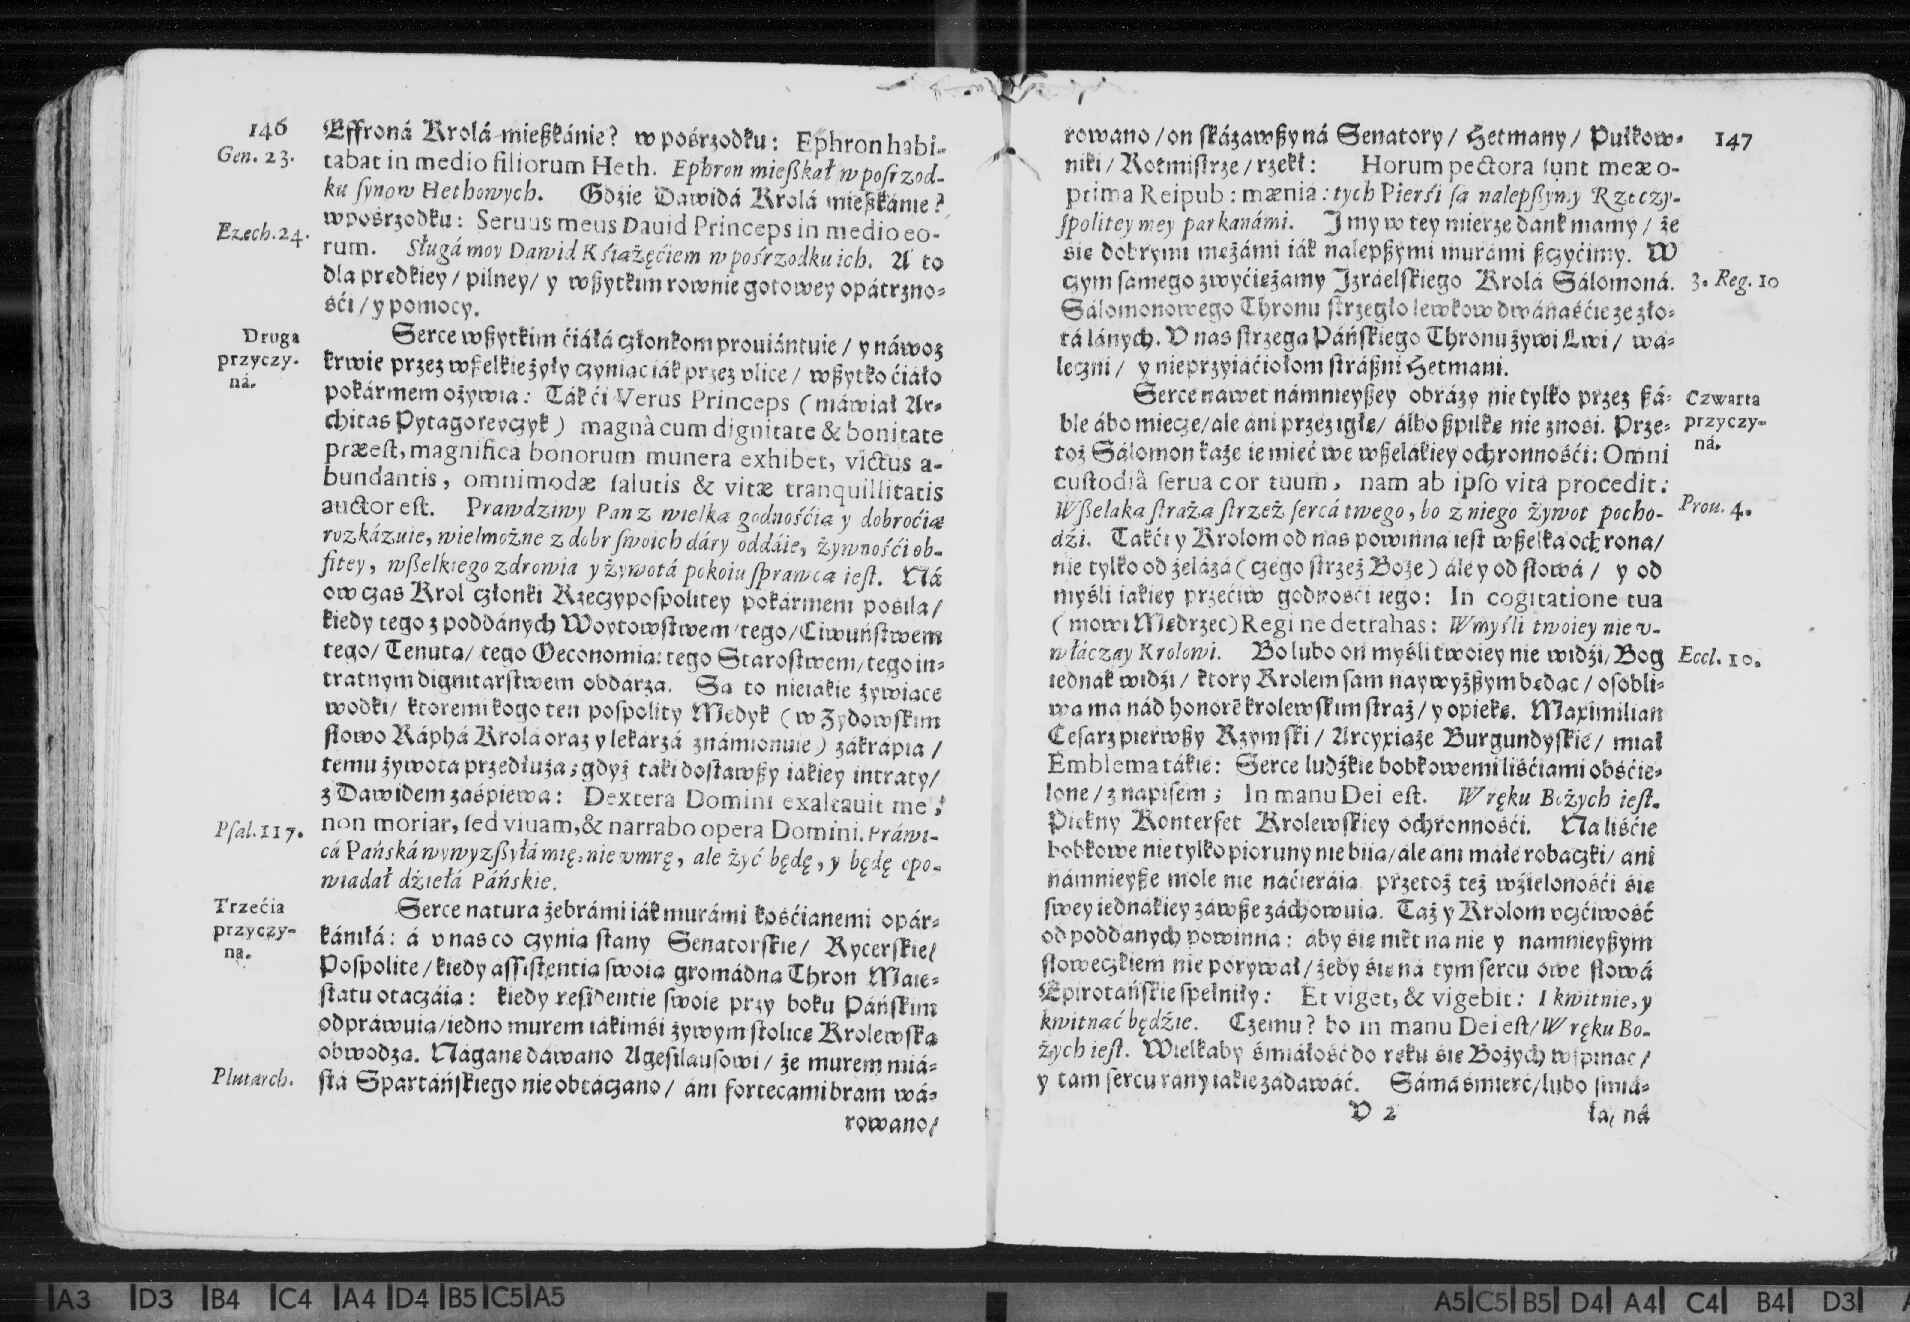 146
Effroná Krolá mießkánie? w pośrzodku: Ephron habi-
Gen. 23.
tabat in medio filiorum Heth. Ephron mießkał w pośrzod-
ku synow Hethowych. Gdzie Dawidá Krolá mießkánie?
Ezech. 24.
w pośrzodku: Seruus meus Dauid Princeps in medio eo-
rum. Sługá moy Dawid Kśiążęćiem w pośrzodku ich. A to
dla prędkiey / pilney / y wßytkim rownie gotowey opátrzno-
śći / y pomocy.
Druga
przyczy-
ná.
Serce wßytkim ćiáłá członkom prouiántuie / y náwoz
krwie przez wßelkie żyły czyniąc iák przez vlice / wßytko ćiáło
pokármem ożywia: Ták ći Verus Princeps (máwiał Ar-
chitas Pytagoreyczyk) magnà cum dignitate & bonitate
præest, magnifica bonorum munera exhibet, victus a-
bundantis, omnimodæ salutis & vitæ tranquillitatis
auctor est. Prawdziwy Pan z wielką godnośćią y dobroćią
rozkázuie, wielmożne z dobr swoich dáry oddáie, żywnośći ob-
fitey, wßelkiego zdrowia y żywotá pokoiu sprawcą iest. Ná
ow czas Krol członki Rzeczypospolitey pokármem pośila /
kiedy tego z poddánych Woytowstwem / tego / Ciwuństwem
tego / Tenutą / tego Oeconomią: tego Starostwem / tego in-
tratnym dignitarstwem obdárza. Są to nieiákie żywiące
wodki / ktoremi kogo ten pospolity Medyk (w Zydowskim
słowo Ráphá Krolá oraz y lekárzá známionuie) zákrápia /
temu żywotá przedłuża; gdyż táki dostawßy iákiey intraty /
z Dawidem záśpiewa: Dextera Domini exaltauit me,
Psal. 117.
non moriar, sed viuam, & narrabo opera Domini. Práwi-
cá Páńská wywyzßyłá mię, nie vmrę, ale żyć będę, y będę opo-
wiadał dźiełá Páńskie.
Trzećia
przyczy-
na.
Serce natura żebrámi iák murámi kośćianemi opár-
kániłá: á v nas co czynią stany Senatorskie / Rycerskie /
Pospolite / kiedy assistentią swoią gromádną Thron Máie-
statu otaczáią: kiedy residentie swoie przy boku Páńskim
odpráwuią / iedno murem iákimśi żywym stolicę Krolewską
obwodzą. Nágánę dawano Agesilausowi / że murem miá-
Plutarch.
stá Spartáńskiego nie obtáczano / áni fortecami bram wá-
rowano /
147
rowano / on skázawßy ná Senatory / Hetmany / Pułkow-
niki / Rotmistrze / rzekł: Horum pectora sunt meæ o-
ptima Reipub: mænia: tych Pierśi są nalepßymy Rzeczy-
spolitey mey parkanámi. I my w tey mierze dank mamy / że
się dobrymi mężámi iák nalepßymi murámi ßczyćimy. W
3. Reg. 10
czym samego zwyćiężamy Izráelskiego Krolá Sálomoná.
Sálomonowego Thronu strzegło lewkow dwánaśćie ze zło-
tá lánych. V nas strzegą Páńskiego Thronu żywi Lwi / wa-
leczni / y nieprzyiáćiołom stráßni Hetmani.
Czwarta
przyczy-
ná.
Serce nawet námnieyßey obrázy nie tylko przez ßá-
ble ábo miecze / ale áni przez igłę / álbo ßpilkę nie znośi. Prze-
toż Sálomon każe ie mieć we wßelákiey ochronnośći: Omni
custodiâ serua cor tuum, nam ab ipso vita procedit:
Prou. 4.
Wßelaką strażą strzeż sercá twego, bo z niego żywot pocho-
dźi. Tákći y Krolom od nas powinna iest wßelka ochrona /
nie tylko od żelázá (czego strzeż Boże) ále y od słowá / y od
myśli iakiey przećiw godnośći iego: In cogitatione tua
(mowi Mędrzec) Regi ne detrahas: W myśli twoiey nie v-
Eccl. 10.
włáczay Krolowi. Bo lubo on myśli twoiey nie widźi / Bog
iednak widźi / ktory Krolem sam naywyżßym będąc / osobli-
wą ma nád honorē krolewskim straż / y opiekę. Maximilian
Cesarz pierwßy Rzymski / Arcyxiążę Burgundyskie / miał
Emblema tákie: Serce ludźkie bobkowemi liśćiami obśćie-
lone / z napisem; In manu Dei est. W ręku Bożych iest.
Piękny Konterfet Krolewskiey ochronnośći. Na liśćie
bobkowe nie tylko pioruny nie biią / ale ani máłe robaczki / ani
námnieyße mole nie náćieráią przetoż też w źielonośći śię
swey iednakiey záwße záchowuią. Taż y Krolom vczćiwość
od poddanych powinna: aby śię nikt na nie y namnieyßym
słoweczkiem nie porywał / żeby śię ná tym sercu owe słowá
Epirotáńskie spełniły: Et viget, & vigebit: I kwitnie, y
kwitnąć będźie. Czemu? bo in manu Dei est / W ręku Bo-
żych iest. Wielkaby śmiáłość do ręku się Bożych wspinać /
y tam sercu rány iákie zádawáć. Sámá śmierć / lubo śmiá-
V 2
ła / ná